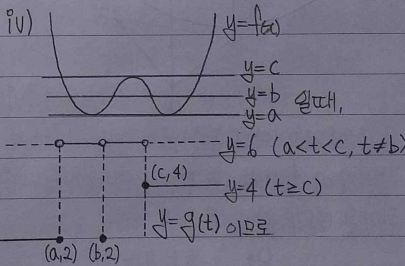 iv)
y=f(x)
y=c
y=b 일때,
y=a
y=6 (a<t<c, t≠b)
(c,4)
y=4 (t≥c)
y=g(t) 이므로
(a,2) (b,2)